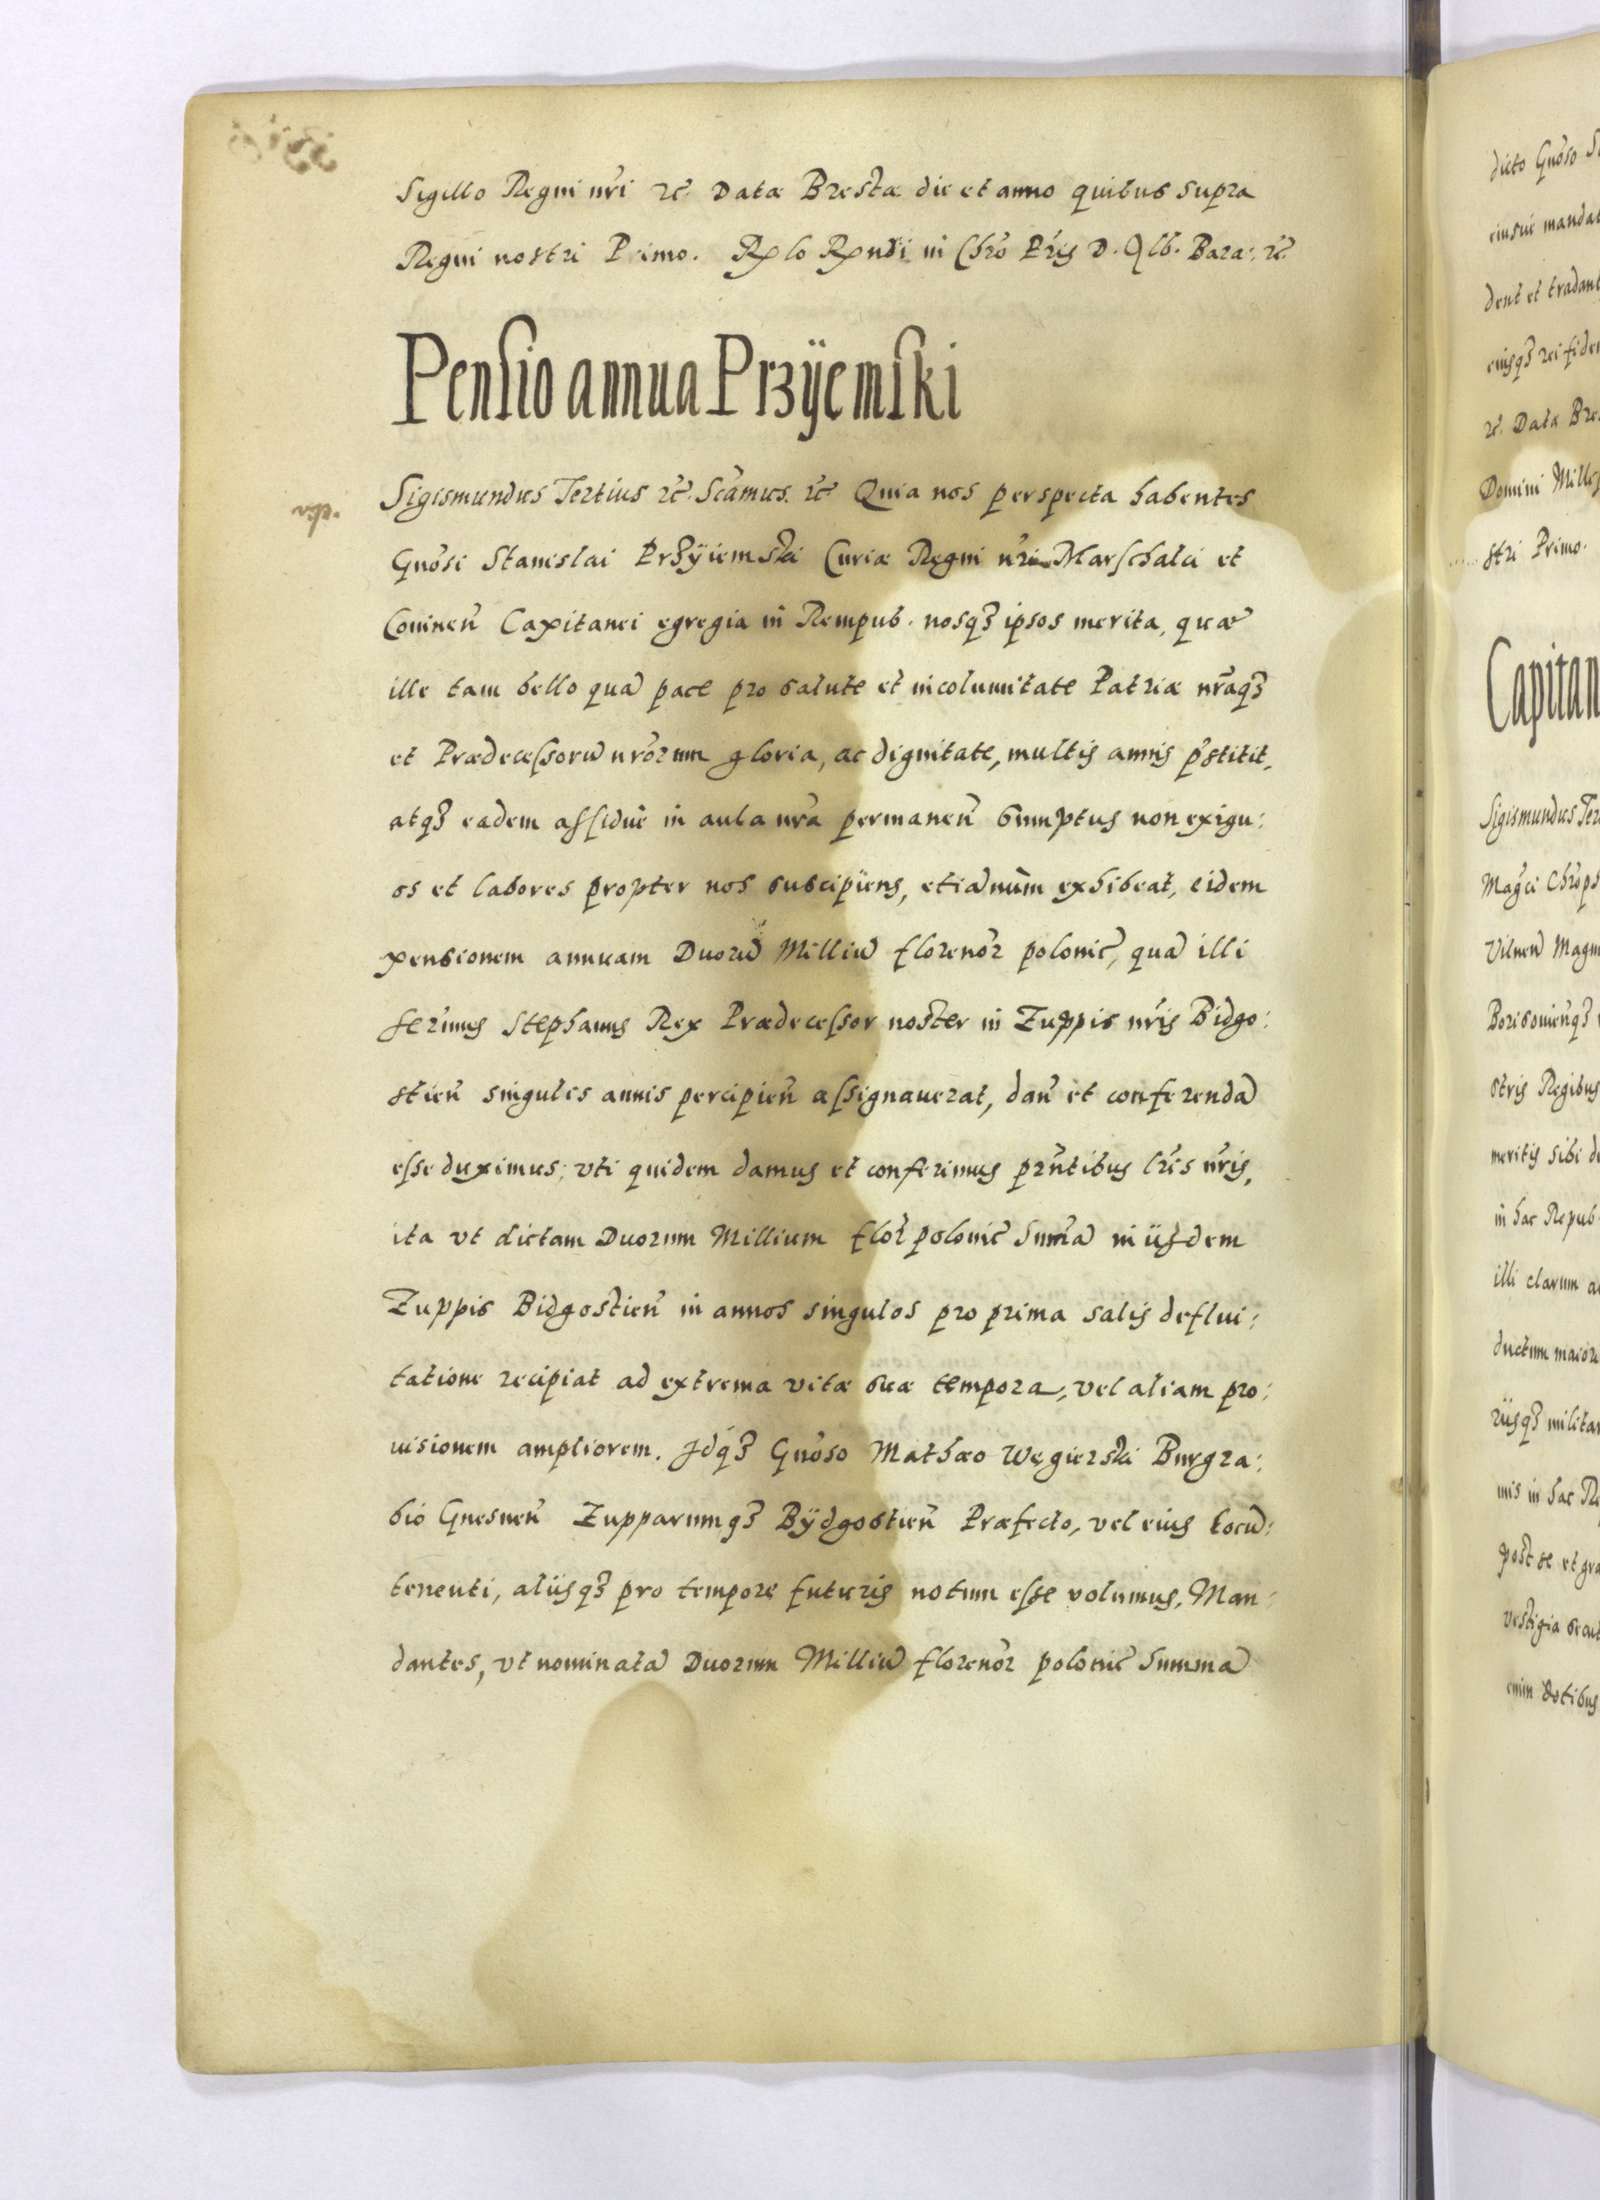 Sigillo Regni nr̃i rc̃. Datæ Brestæ die et anno quibus supra
Regni nostri Primo. Rx̃lo Rx̃ndi in Chr̃o Pr̃is D. Alb. Bara: rc̃.
Pensio annua Przÿemski
Sigismundus Tertius rc̃. Scãmus. rc̃ Quia nos perspecta habentes
vsp.
Gnõsi Stanislai Przÿiemski Curiæ Regni nr̃i Marschalci et
Coninen̄ Capitanei egregia in Rempub. nosqꝫ ipsos merita, quæ
ille tam bello quã pace pro salute et incolumitate Patriæ nr̃aqꝫ
et Prædecessorũ nr̃orum gloria, ac dignitate, multis annis p̃stitit,
atqꝫ eadem assiduè in aula nr̃a permanen̄ sumptus non exigu:
os et labores propter nos suscipiens, etiãnùm exhibeat, eidem
pensionem annuam Duorũ Milliũ florenor̃ polonic̃, quã illi
Ser̃imus Stephanus Rex Prædecessor noster in Zuppis nr̃is Bidgo:
stien̄ singulis annis percipien̄ assignauerat, dan̄ et conferendã
esse duximus; vti quidem damus et conferimus prñtibus lr̃is nr̃is,
ita vt dictam Duorum Millium flor̃ polonic̃ Sum̃ã in ijsdem
Zuppis Bidgostien̄ in annos singulos pro prima salis deflui:
tatione recipiat ad extrema vitæ suæ tempora, vel aliam pro:
uisionem ampliorem. Idqꝫ Gnõso Mathæo Węgierski Burgra:
bio Gnesnen̄ Zupparumqꝫ Bÿdgostien̄ Præfecto, vel eius Locũ:
tenenti, alijsqꝫ pro tempore futuris notum esse volumus, Man:
dantes, vt nominatã Duorum Milliũ florenor̃ polonic̃ Summã
dicto Gnõso
eiusue
dent et tradant
eiusqꝫ rei
rc̃. Datæ
Domini
stri Primo.
Sigismundus
Magc̃i
Vilnen̄
stris Regibus
meritis sibi
in hac Repub.
illi clarum
ductum
in hac
post se et
vestigia
enim dotibus